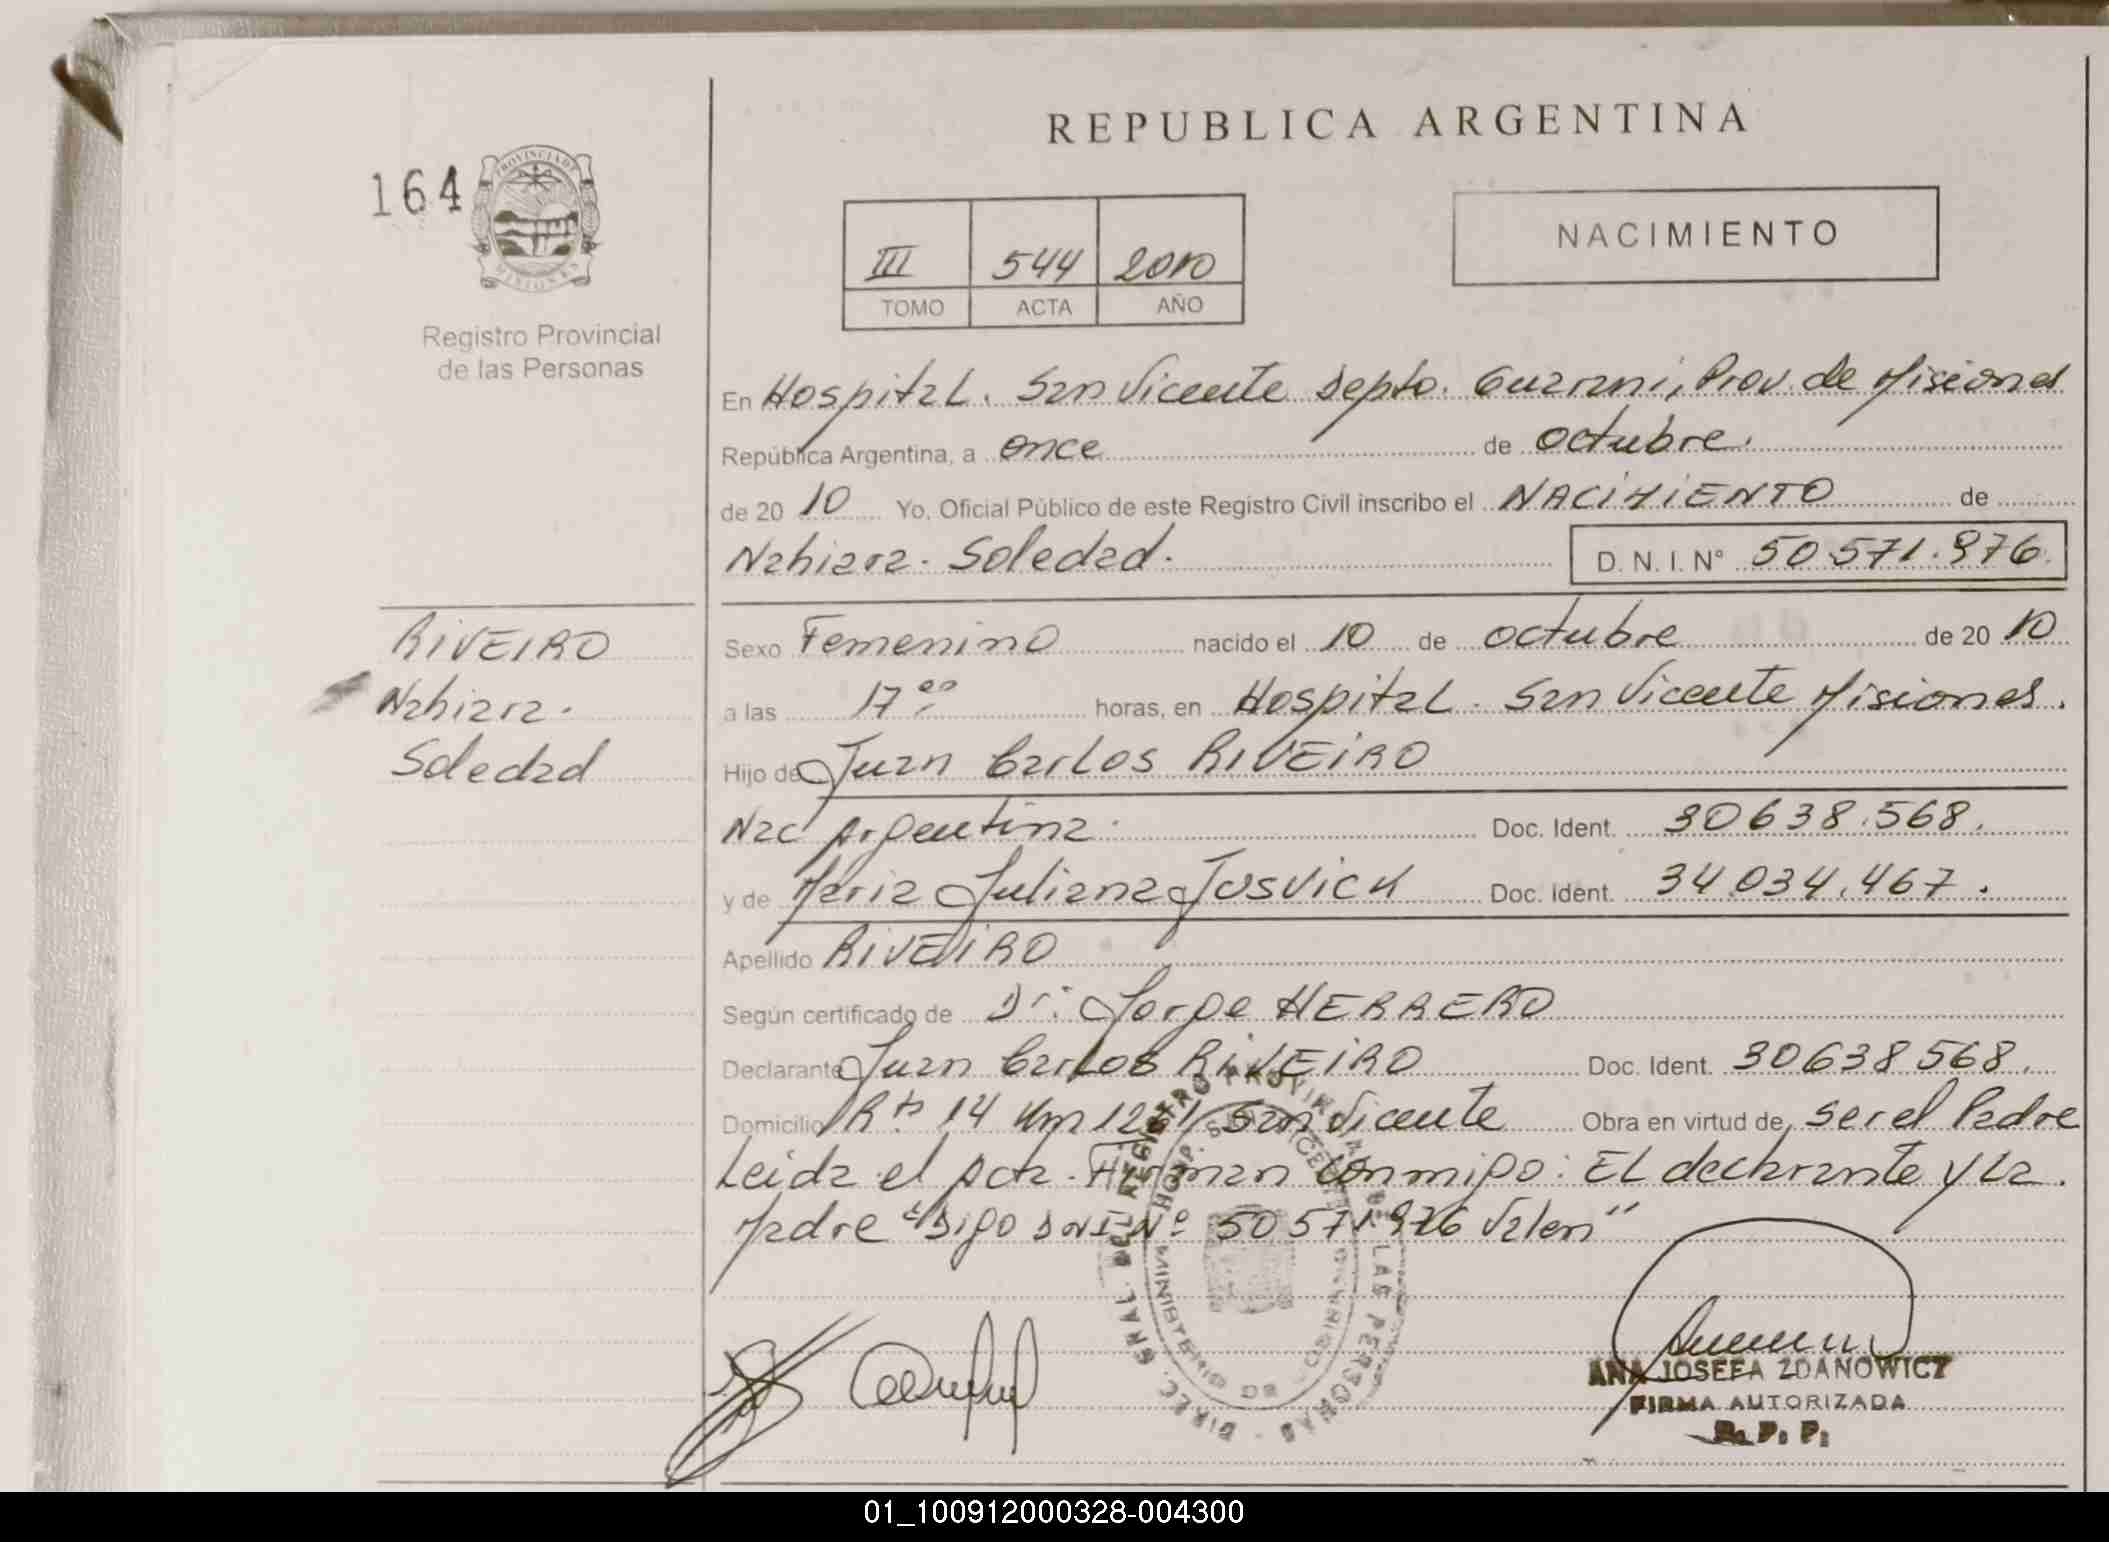 REPUBLICA ARGENTINA
164
PROVINCIA DE
MISIONES
Registro Provincial
de las Personas
III 544 2010
TOMO ACTA AÑO
NACIMIENTO
En Hospital. San Vicente Depto. Guarani, Prov. de Misiones
República Argentina, a once de octubre.
de 20 10 Yo, Oficial Público de este Registro Civil inscribo el NACIMIENTO de
Nahiara. Soledad. D. N. I. Nº 50.571.976.
RIVEIRO
Nahiara.
Soledad
Sexo Femenino nacido el 10 de octubre de 20 10
a las 17 00 horas, en Hospital. San Vicente Misiones.
Hijo de Juan Carlos RIVEIRO
Nac Argentina. Doc. Ident. 30638.568.
y de Maria Juliana JUSVICK Doc. Ident. 34.034.467.
Apellido RIVEIRO
Según certificado de Dr. Jorge HERRERO
Declarante Juan Carlos RIVEIRO Doc. Ident. 30638568.
Domicilio Rta 14 Km 1261 San Vicente Obra en virtud de ser el Padre
Leida el Acta. Firman conmigo: EL declarante y La.
Madre "Digo DNI Nº 50571976 Valen"
DIREC. GRAL. DEL REGISTRO PROVINCIAL DE LAS PERSONAS
HOSP. SAN VICENTE
MINISTERIO DE GOBIERNO
ANA JOSEFA ZDANOWICZ
FIRMA AUTORIZADA
R. P. P.
01_100912000328-004300